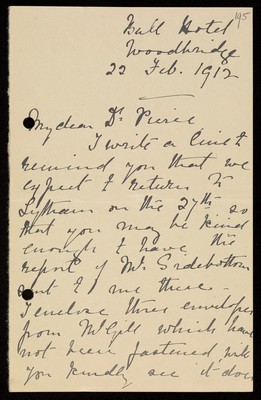 195
Bull Hotel
Woodbridge
22 Feb. 1912
My dear Dr Pierce
I write a line to
remind you that we
expect to return to
Lytham on the 27th so
that you may be kind
enough to have the
report of Mr Sidebottom
sent to me there -
I enclose three envelopes
from McGill which have
not been fastened, will
you kindly see it does